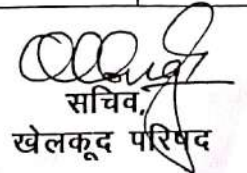 सचिव,
खेलकूद परिषद